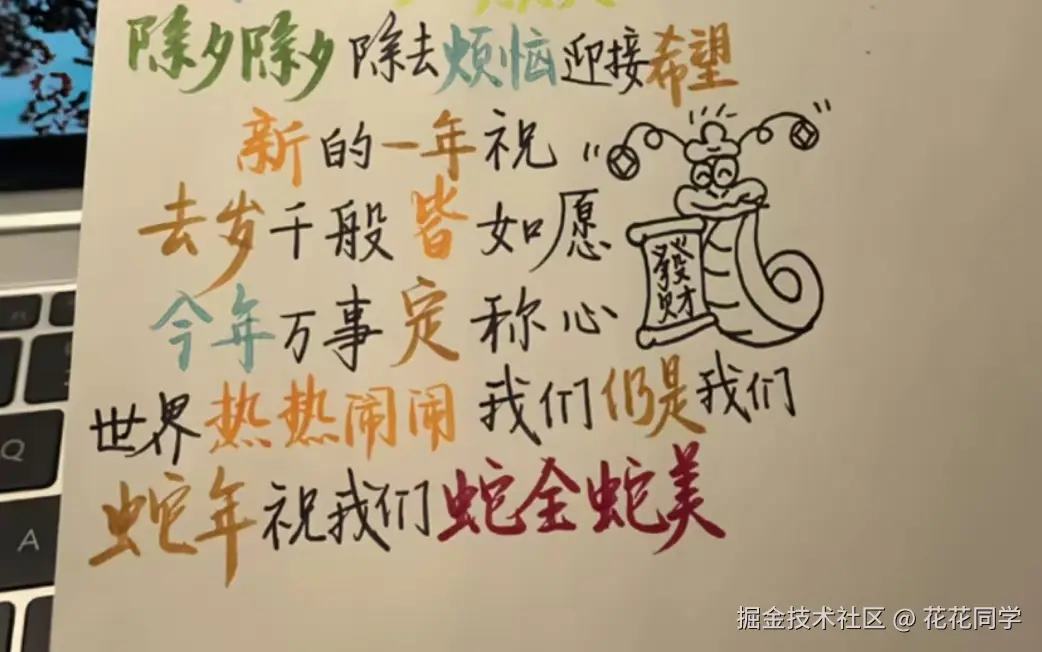 除夕除夕 除去烦恼迎接希望
新的一年祝
去岁千般皆如愿
今年万事定称心
發财
世界热热闹闹 我们仍是我们
蛇年祝我们蛇全蛇美
Q
A
掘金技术社区 @ 花花同学